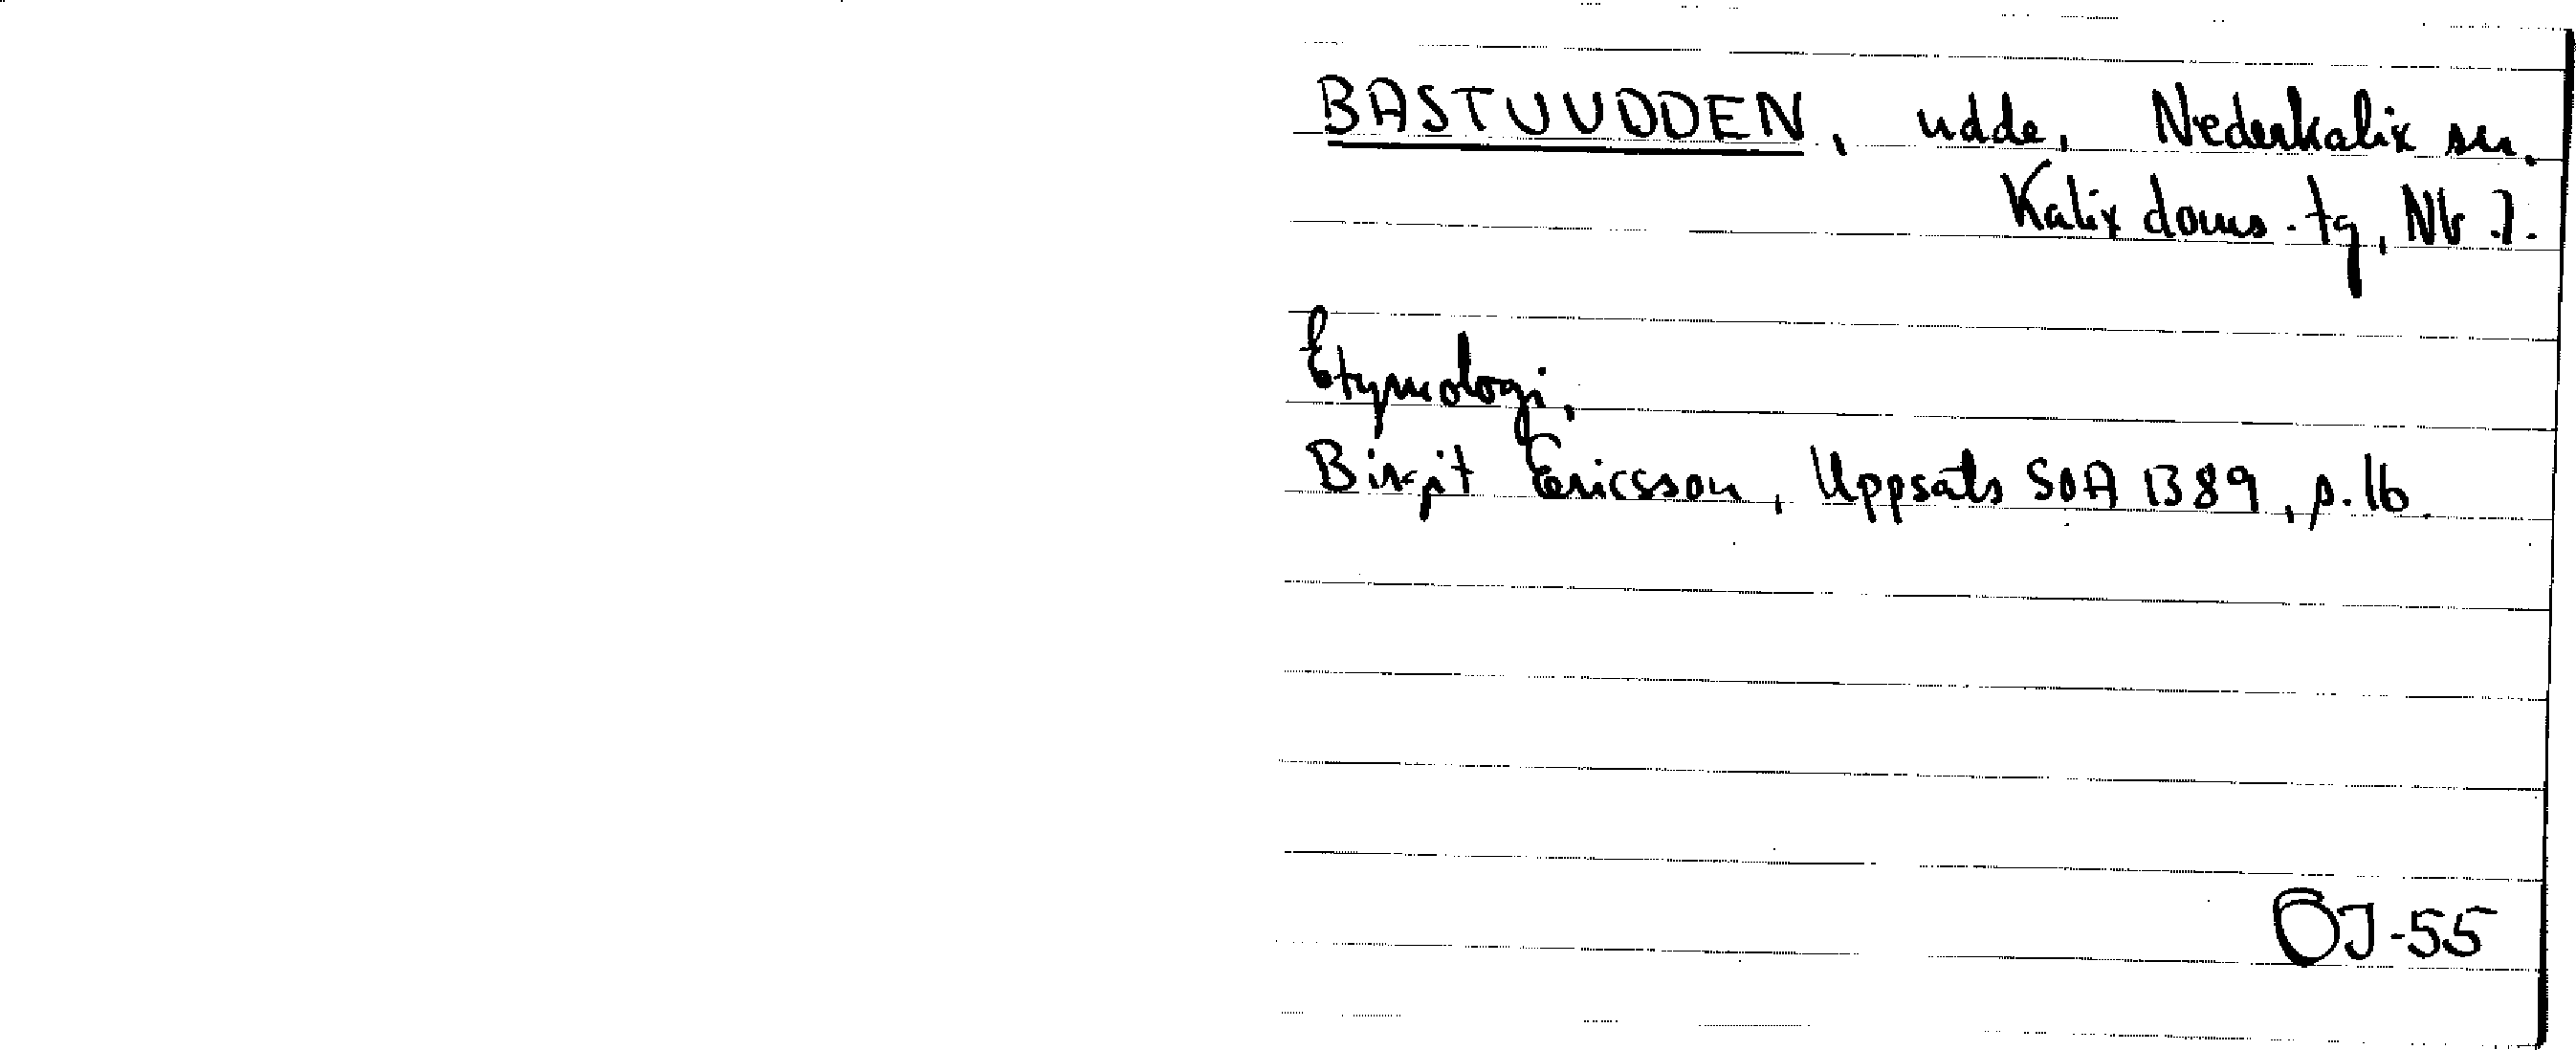 BASTUUDDEN, udde, Nederkalix sn.
Kalix doms.tg, Nb l.
Etymologi.
Birgit Ericsson, Uppsats SOA 1389, p. 16.
ÖJ-55